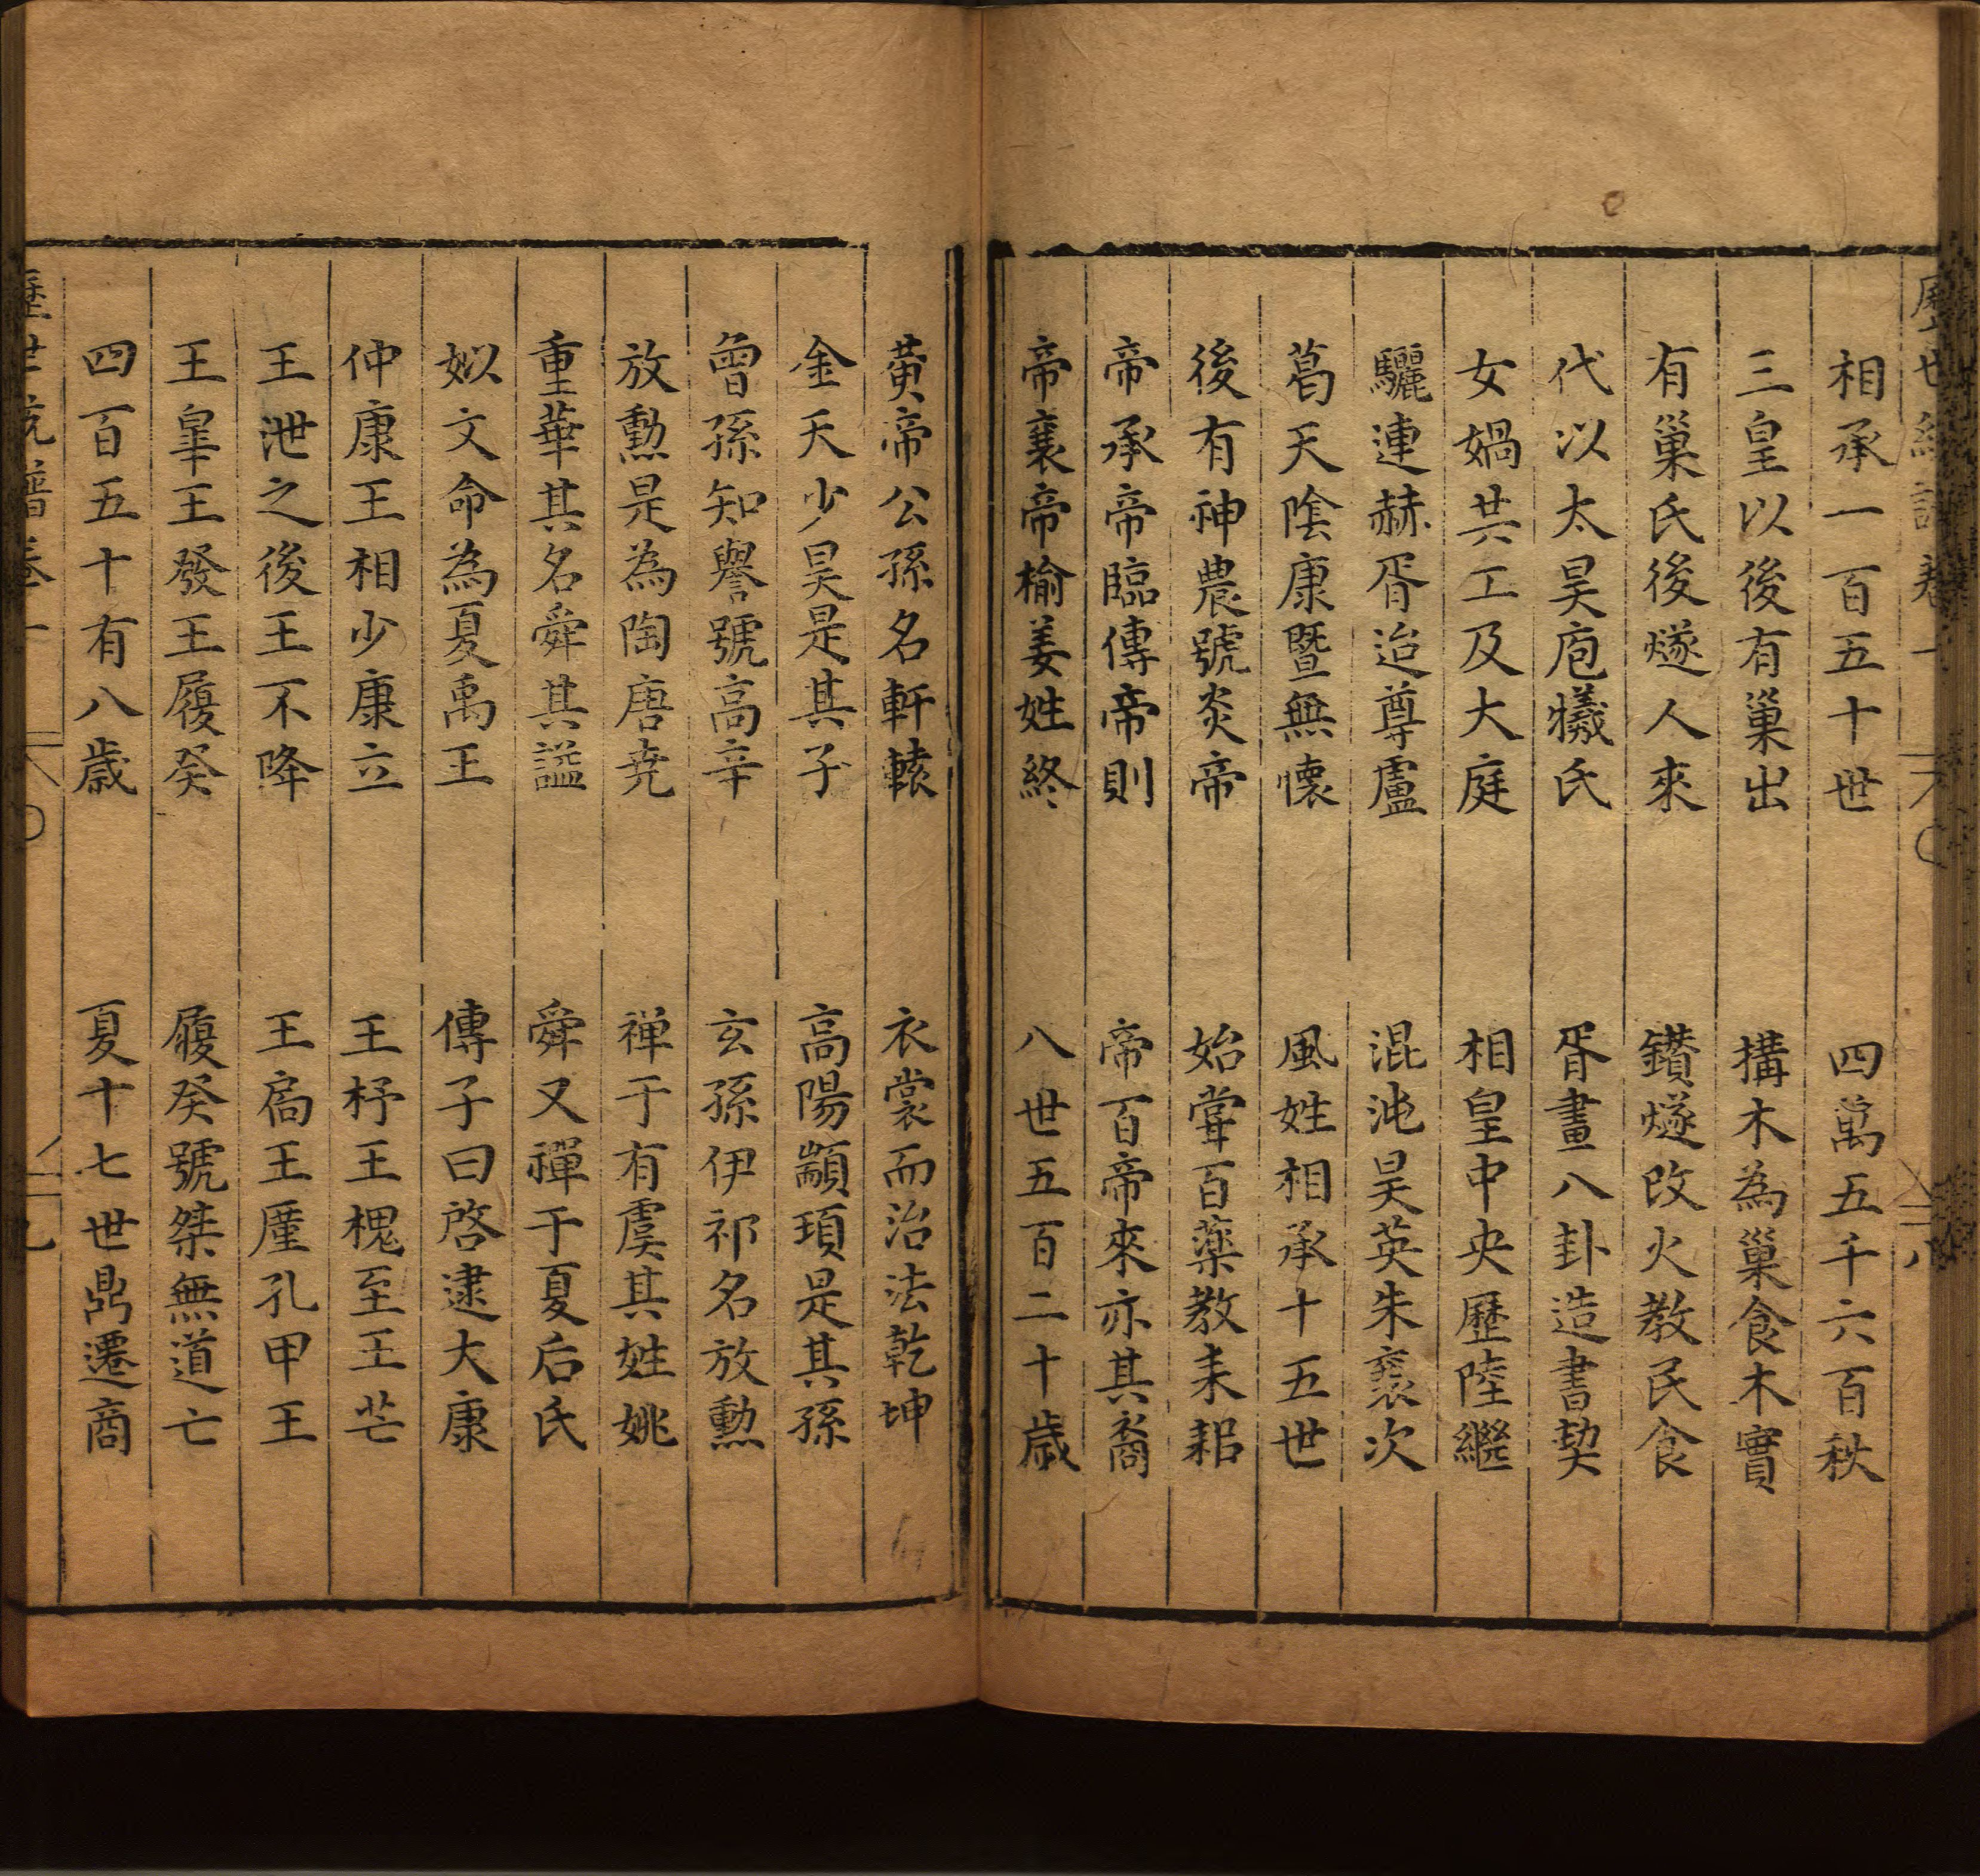 相承一百五十世　四萬五千六百秋
三皇以後有巢出　搆木為巢食木實
有巢氏後燧人來　鑚燧改火教民食
代以太昊庖犧氏　胥畫八卦造書契
女媧共工及大庭　相皇中央歷陸繼
驪連赫胥迨尊盧　混沌昊英朱襄次
葛天陰康暨無懷　風姓相承十五世
後有神農號炎帝　始甞百藥教耒耜
帝承帝臨傳帝則　帝百帝來亦其裔
帝襄帝榆姜姓終　八世五百二十歲
黃帝公孫名軒轅　衣裳而治法乾坤
金天少昊是其子　高陽顓頊是其孫
曾孫知譽號高辛　玄孫伊祁名放勲
放勲是為陶唐尭　禅于有虞其姓姚
重華其名舜其謚　舜又禪于夏后氏
姒文命為夏禹王　傳子曰啓逮大康
仲康王相少康立　王杼王槐至王芒
王泄之後王不降　王扃王廑孔甲王
王皋王發王履癸　履癸號桀無道亡
四百五十有八歲　夏十七世鼎遷商
歷世統譜卷一